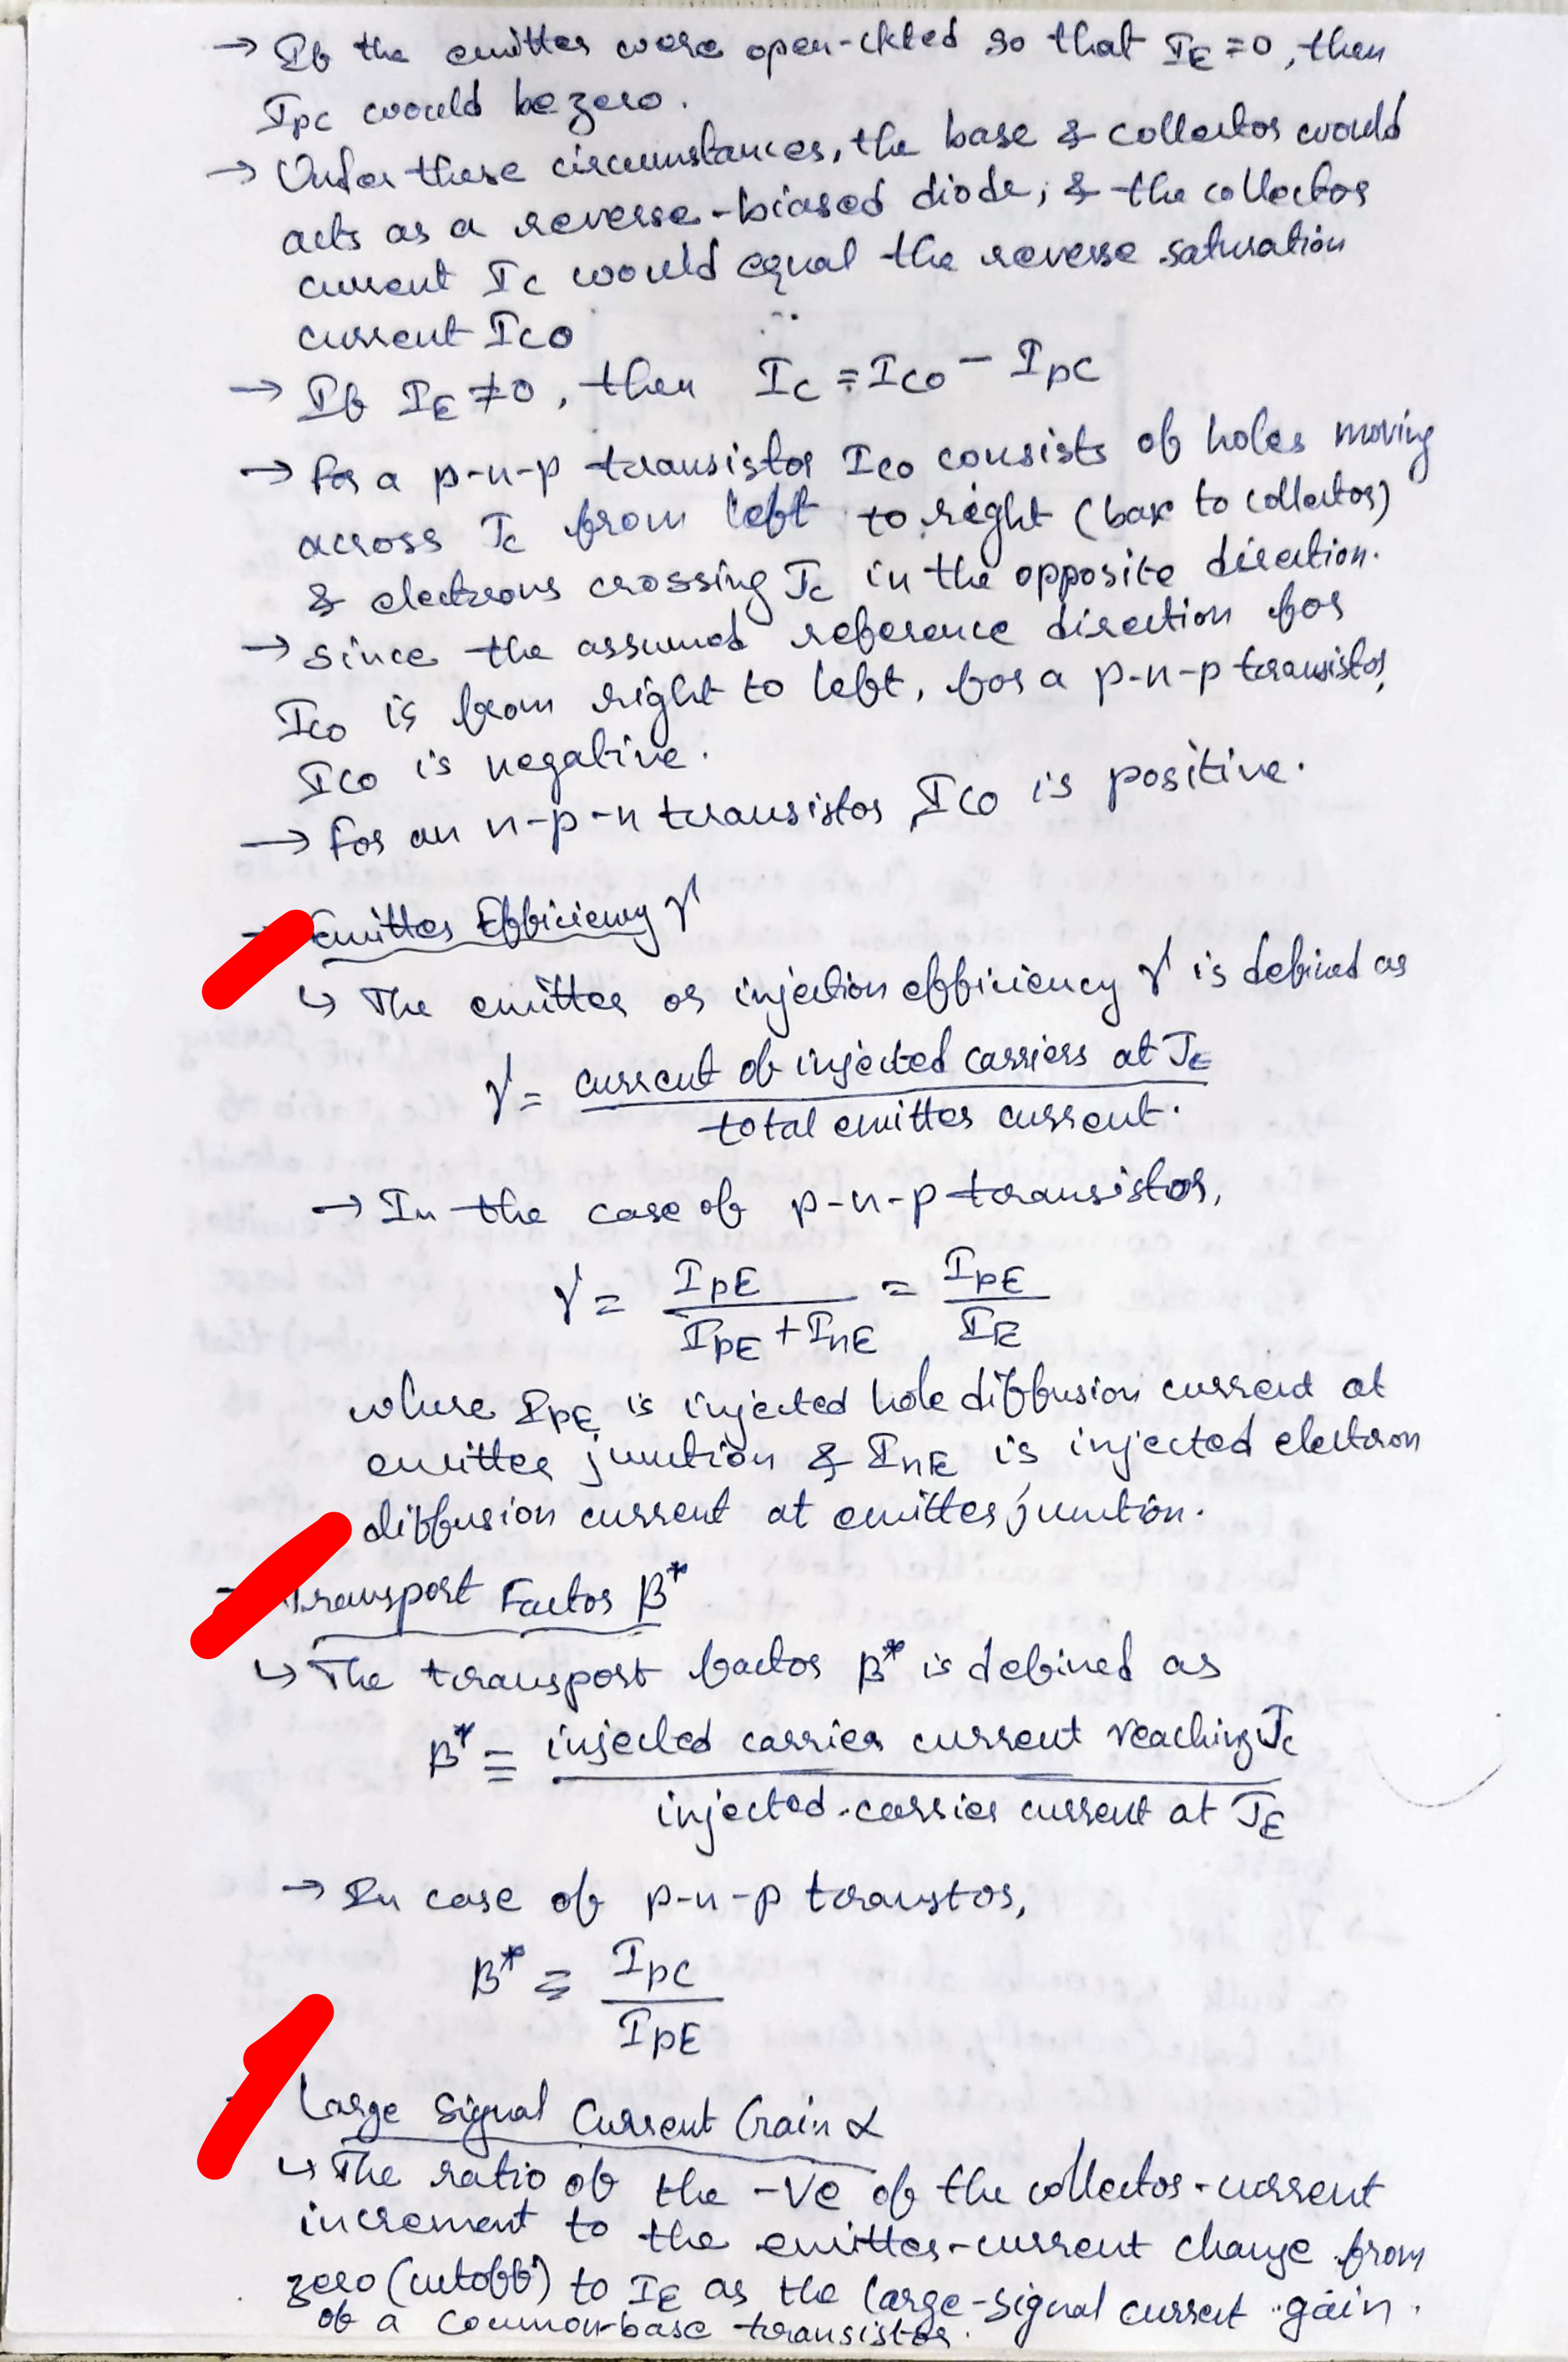 → If the emitter were open-ckted so that IE = 0, then
IpC would be zero.
→ Under these circumstances, the base & collector would
acts as a reverse-biased diode, & the collector
current IC would equal the reverse saturation
current ICO
→ If IE ≠ 0, then IC = ICO - IpC
→ For a p-n-p transistor ICO consists of holes moving
across JC from left to right (base to collector)
& electrons crossing JC in the opposite direction.
→ since the assumed reference direction for
ICO is from right to left, for a p-n-p transistor,
ICO is negative.
→ For an n-p-n transistor, ICO is positive.
→ Emitter Efficiency γ
↳ The emitter or injection efficiency γ is defined as
γ = current of injected carriers at JE
total emitter current.
→ In the case of p-n-p transistor,
γ = IpE / (IpE + InE) = IpE / IE
where IpE is injected hole diffusion current at
emitter junction & InE is injected electron
diffusion current at emitter junction.
Transport Factor β*
↳ The transport factor β* is defined as
β* = injected carrier current reaching JC
injected-carrier current at JE
→ In case of p-n-p transtor,
β* = IpC / IpE
Large Signal Current Gain α
↳ The ratio of the -ve of the collector-current
increment to the emitter-current change from
zero (cutoff) to IE as the large-signal current gain.
of a common-base transistor.